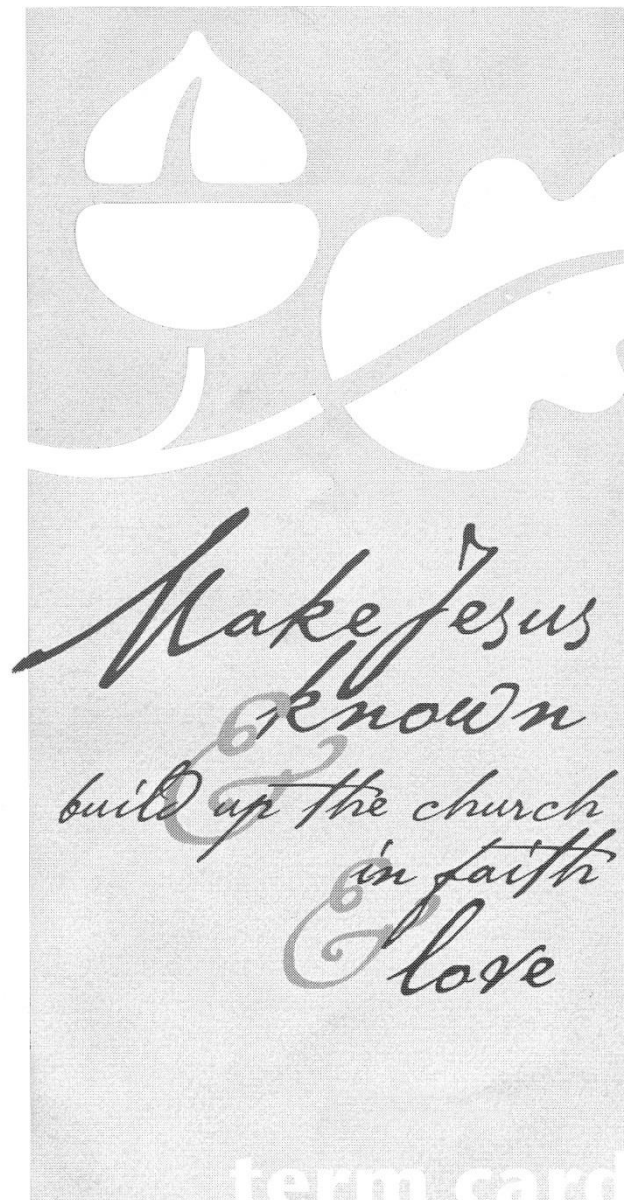 Make Jesus
& known
build up the church
in faith
& love
term card